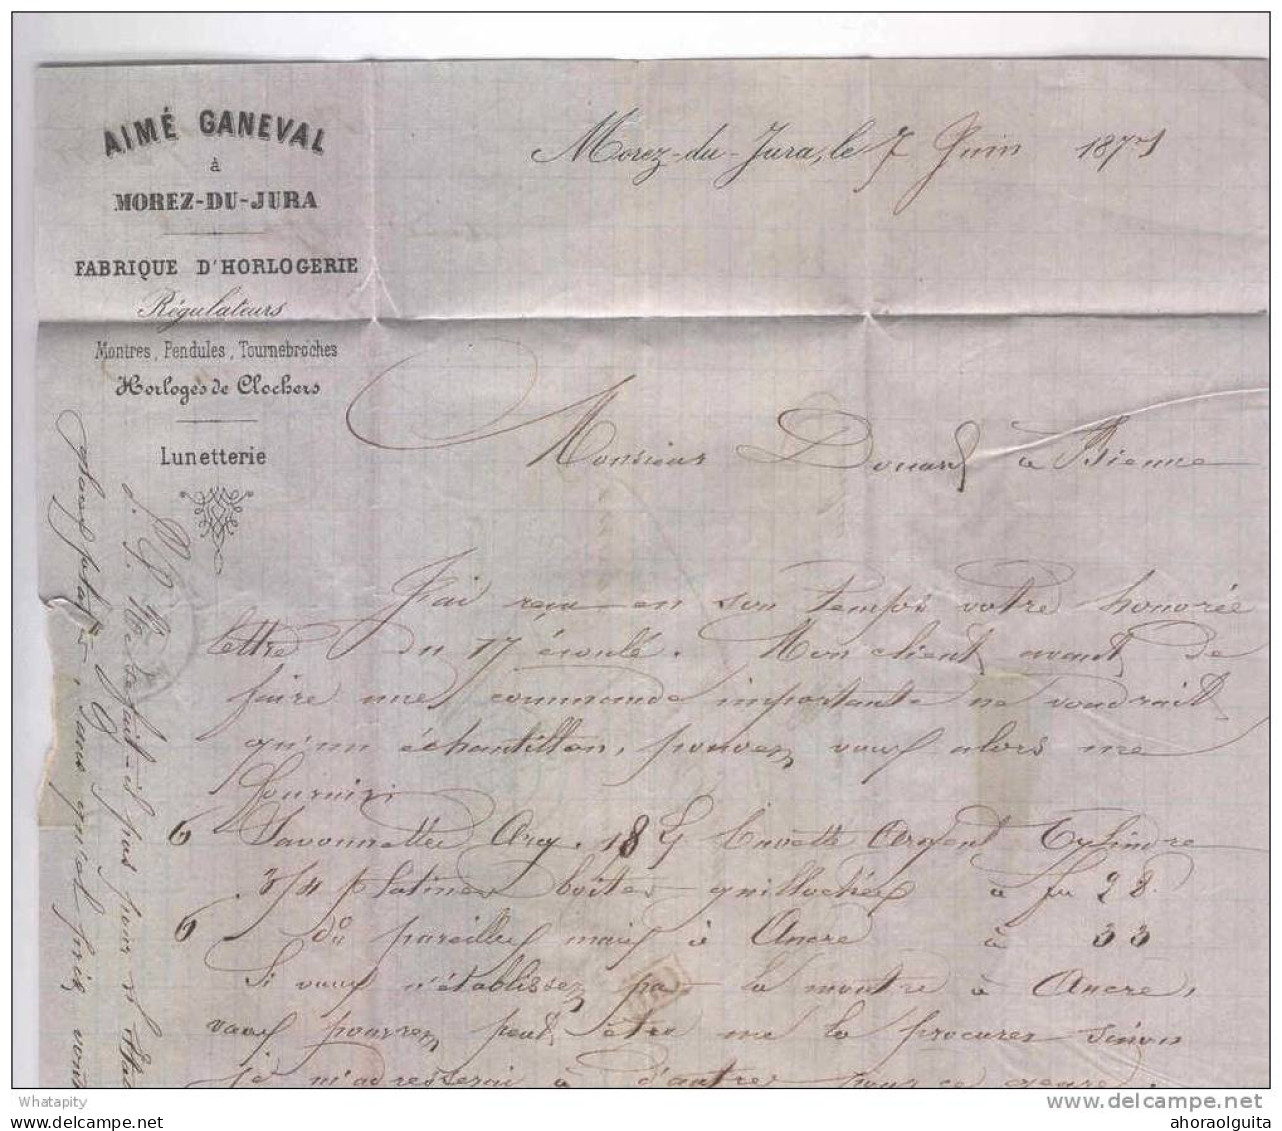 AIMÉ GANEVAL
à
MOREZ-DU-JURA
FABRIQUE D'HORLOGERIE
Régulateurs
Montres, Pendules, Tournebroches
Horloges de Clochers
Lunetterie
Morez-du-Jura, le 7 Juin 1871
Monsieur Douard à Bienne
J'ai reçu en son temps votre honorée
lettre du 17 écoulé. Mon client avant de
faire une commande importante ne voudrait
qu'un échantillon, pouvez vous alors me
fournir:
6 Savonnettes Arg. 18 Cuvette Argent Cylindre
3/4 platines boîtes guillochées à fr 28.
6 do pareilles mais à Ancre à 33
Si vous n'établissez pas la montre à Ancre,
vous pourrez peut être me la procurer sinon
je m'adresserai à d'autres pour ce genre.
P.S. Ne se fait-il pas pour
sans quel prix
Whatapity
delcampe.net
ahoraolguita